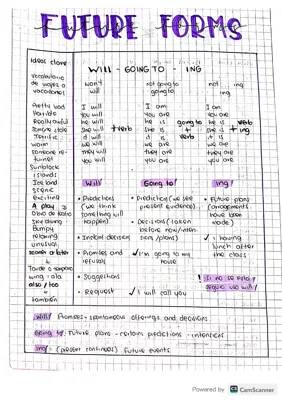 FUTURE FORMS
Ideas clave:
Vocabulario
de viajes o
vacaciones
Awful
Horrible
Terrific
warm
Sunblock
Islands
Iceland
scene
exciting
A play
bumpy
relaxing
unusual
also / too
también
WILL - GOING TO - ING
won't
will
not going to
going to
not
ing
I will
You will
he will
She will + verb
it will
we will
they will
You will
I am
You are
he is going to
she is + verb
it is
we are
they are
you are
I am
You are
he is
she is + ing
it is verb
we are
they are
You are
Will/
• Predictions
(we think
something will
happen)
• Promises and
refusals
• Suggestions
• Request
Going to/
• Prediction (we see
present evidence)
• Decisions (taken
before now/
plans)
✓ I'm going to my
house
✓ I will call you
ing/
• Future plans
(arrangements
have been
made)
✓ I having
lunch after
the class
Will/ Promises - spontaneous offerings and decisions
Going to/ Future plans - certain predictions - intentions
ing/ (present continuous) Future events
Powered by CS CamScanner